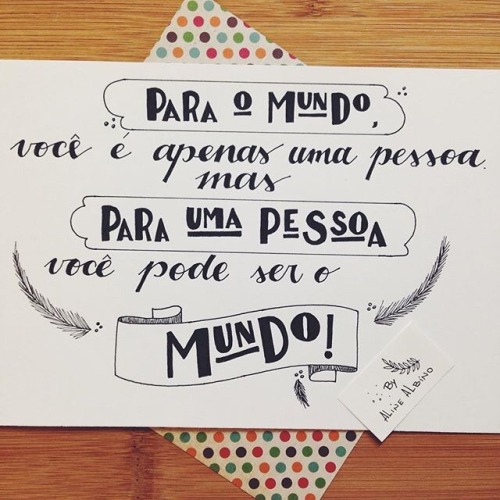 PARA O MUNDO,
você é apenas uma pessoa.
mas
PARA UMA PESSOA
você pode ser o
MUNDO!
BY
ALINE ALBINO